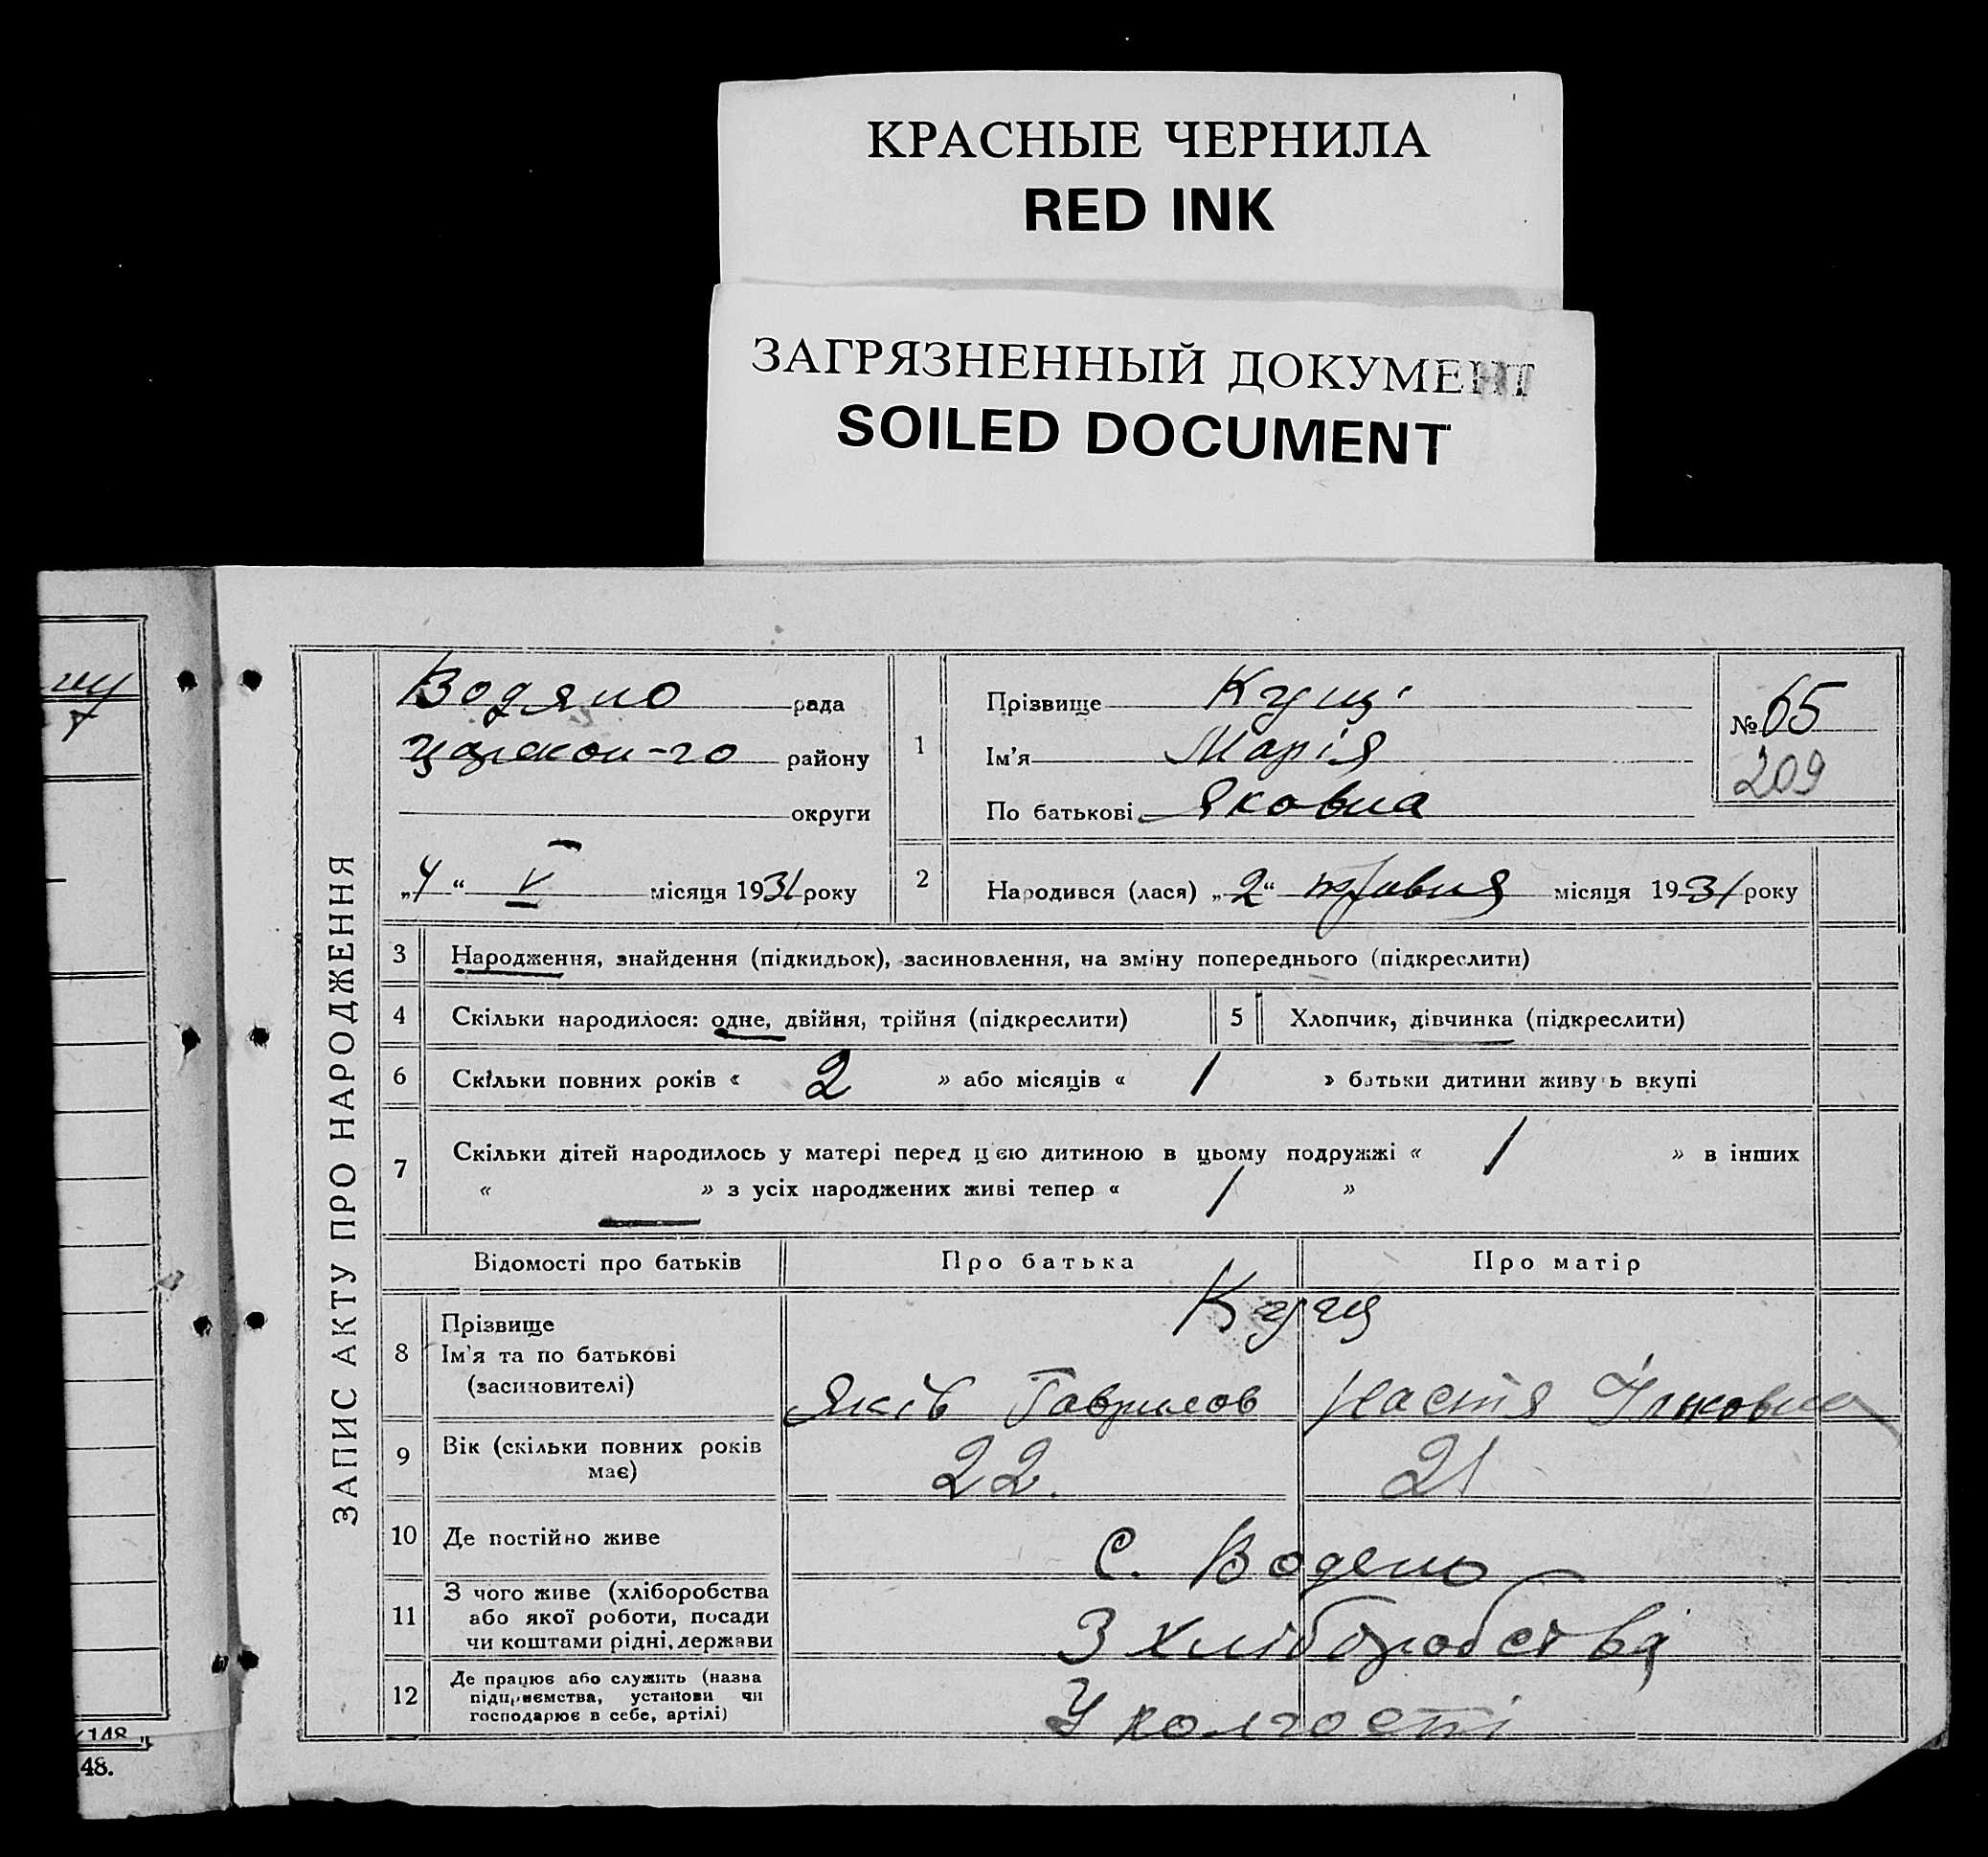 КРАСНЫЕ ЧЕРНИЛА
RED INK
ЗАГРЯЗНЕННЫЙ ДОКУМЕНТ
SOILED DOCUMENT
ЗАПИС АКТУ ПРО НАРОДЖЕННЯ
Водяно рада
району
округи
„4“ V місяця 1931 року
1 Прізвище
Ім'я Марія
По батькові Яковна
№ 65
209
2 Народився (лася) „2“ травня місяця 1931 року
3 Народження, знайдення (підкидьок), засиновлення, на зміну попереднього (підкреслити)
4 Скільки народилося: одне, двійня, трійня (підкреслити) 5 Хлопчик, дівчинка (підкреслити)
6 Скільки повних років « 2 » або місяців « / » батьки дитини живуть вкупі
7 Скільки дітей народилось у матері перед цією дитиною в цьому подружжі « / » в інших
« — » з усіх народжених живі тепер « / »
Відомості про батьків Про батька Про матір
8 Прізвище
Ім'я та по батькові
(засиновителі)
Яків Гаврилов Настя
9 Вік (скільки повних років
має)
22. 21
10 Де постійно живе С. Водяно
11 З чого живе (хліборобства
або якої роботи, посади
чи коштами рідні, держави
З хліборобства
12 Де працює або служить (назва
підприємства, установи чи
господарює в себе, артілі)
У колгоспі
148
48.